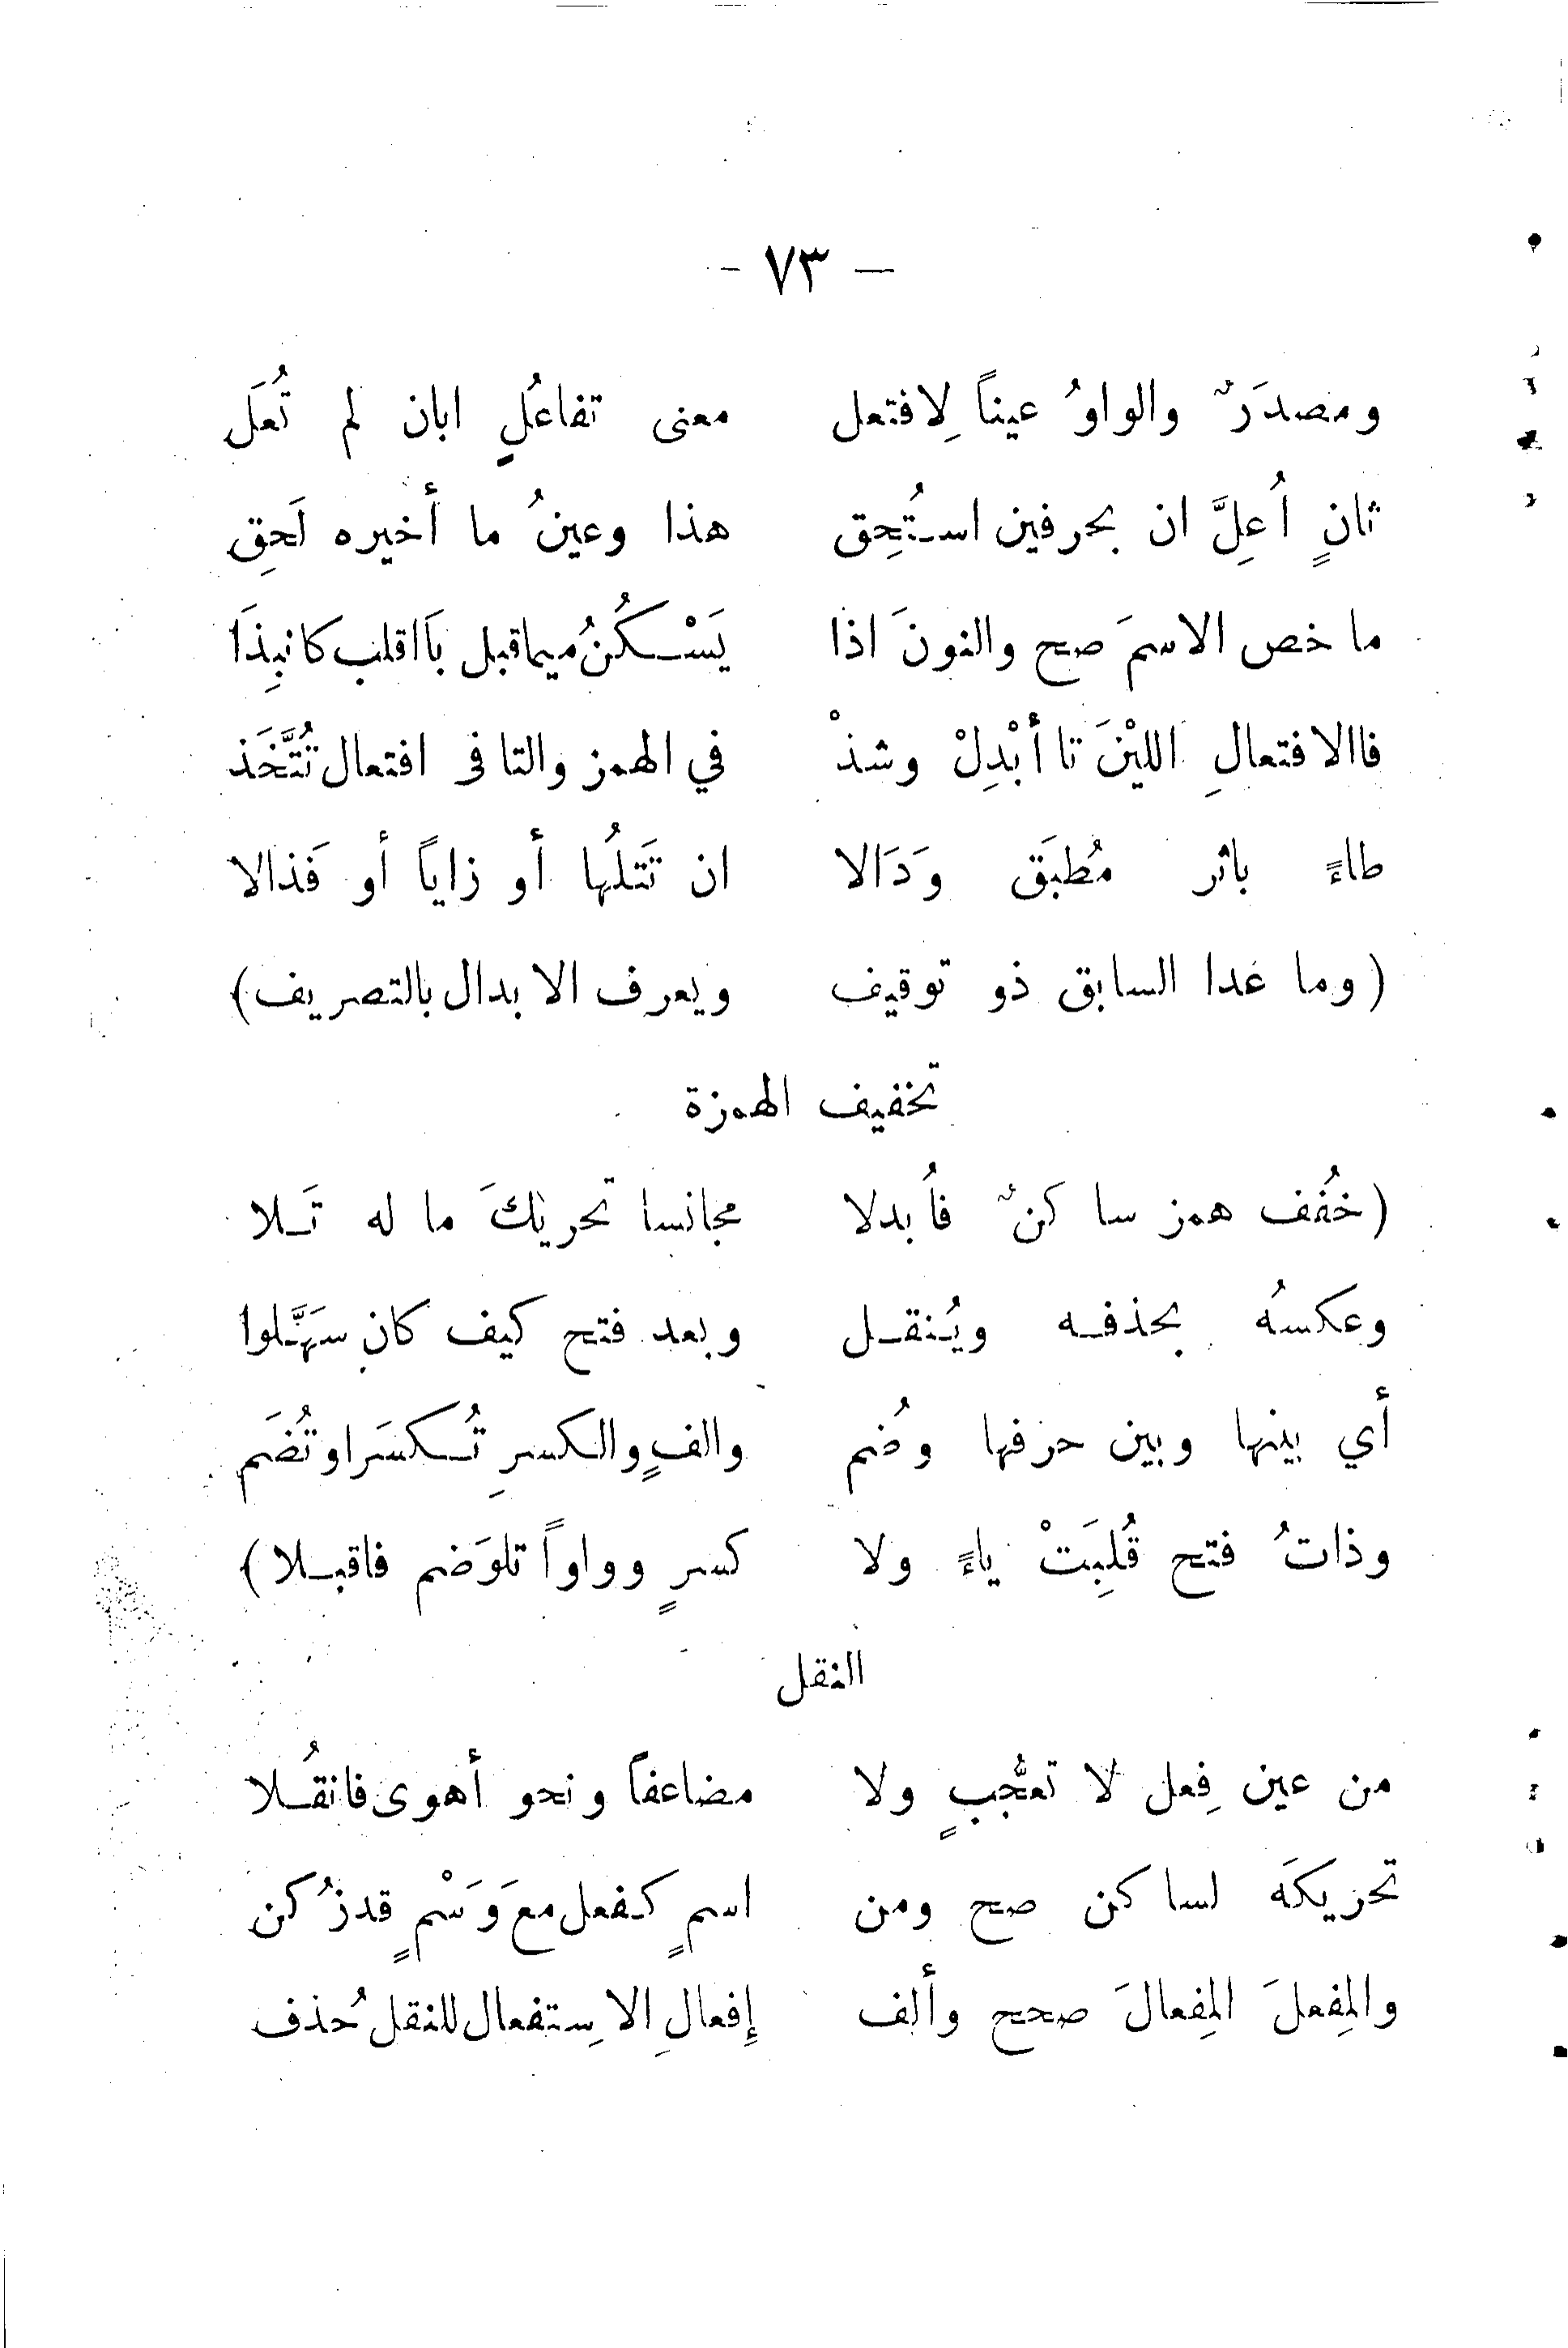 – ٧٣ –
ومصدَرٌ والواوُ عيناً لِافتعل معنى تفاعُلٍ ابان لم تُعَل
ثانٍ اُعِلَّ ان بحرفين استُحِق هذا وعينُ ما أخيره لَحِق
ما خص الاسمَ صح والنونَ اذا يَسْكُنُ ميما قبل بَا اقلب كانبِذَا
فاالافتعالِ الليْنَ تا أبْدِلْ وشذْ في الهمز والتا فى افتعال تُتَّخَذ
طاءً باثر مُطبَق وَدَالا ان تَتلُها أو زاياً أو فَذالا
(وما غدا السابق ذو توقيف ويعرف الابدال بالتصريف)
تخفيف الهمزة
(خُفف همز ساكنٌ فأُبدلا مجانسا تحريكَ ما له تَلا
وعكسُه بحذفه ويُنقل وبعد فتح كيف كان سهَّلوا
أي بينها وبين حرفها وضُم والفٍ والكسرِ تُكسَر او تُضَم
وذاتُ فتح قُلِبَتْ ياءً ولا كسرٍ وواواً تلوَ ضم فاقبلا)
النقل
من عين فِعل لا تعجُّبٍ ولا مضاعفاً ونحو أهوى فانقُلا
تحريكَه لساكن صح ومن اسمٍ كفعل معَ وَسْمٍ قد زُكن
والمِفعلَ المِفعالَ صحح وألف إفعالِ الاِستفعال للنقل حُذف